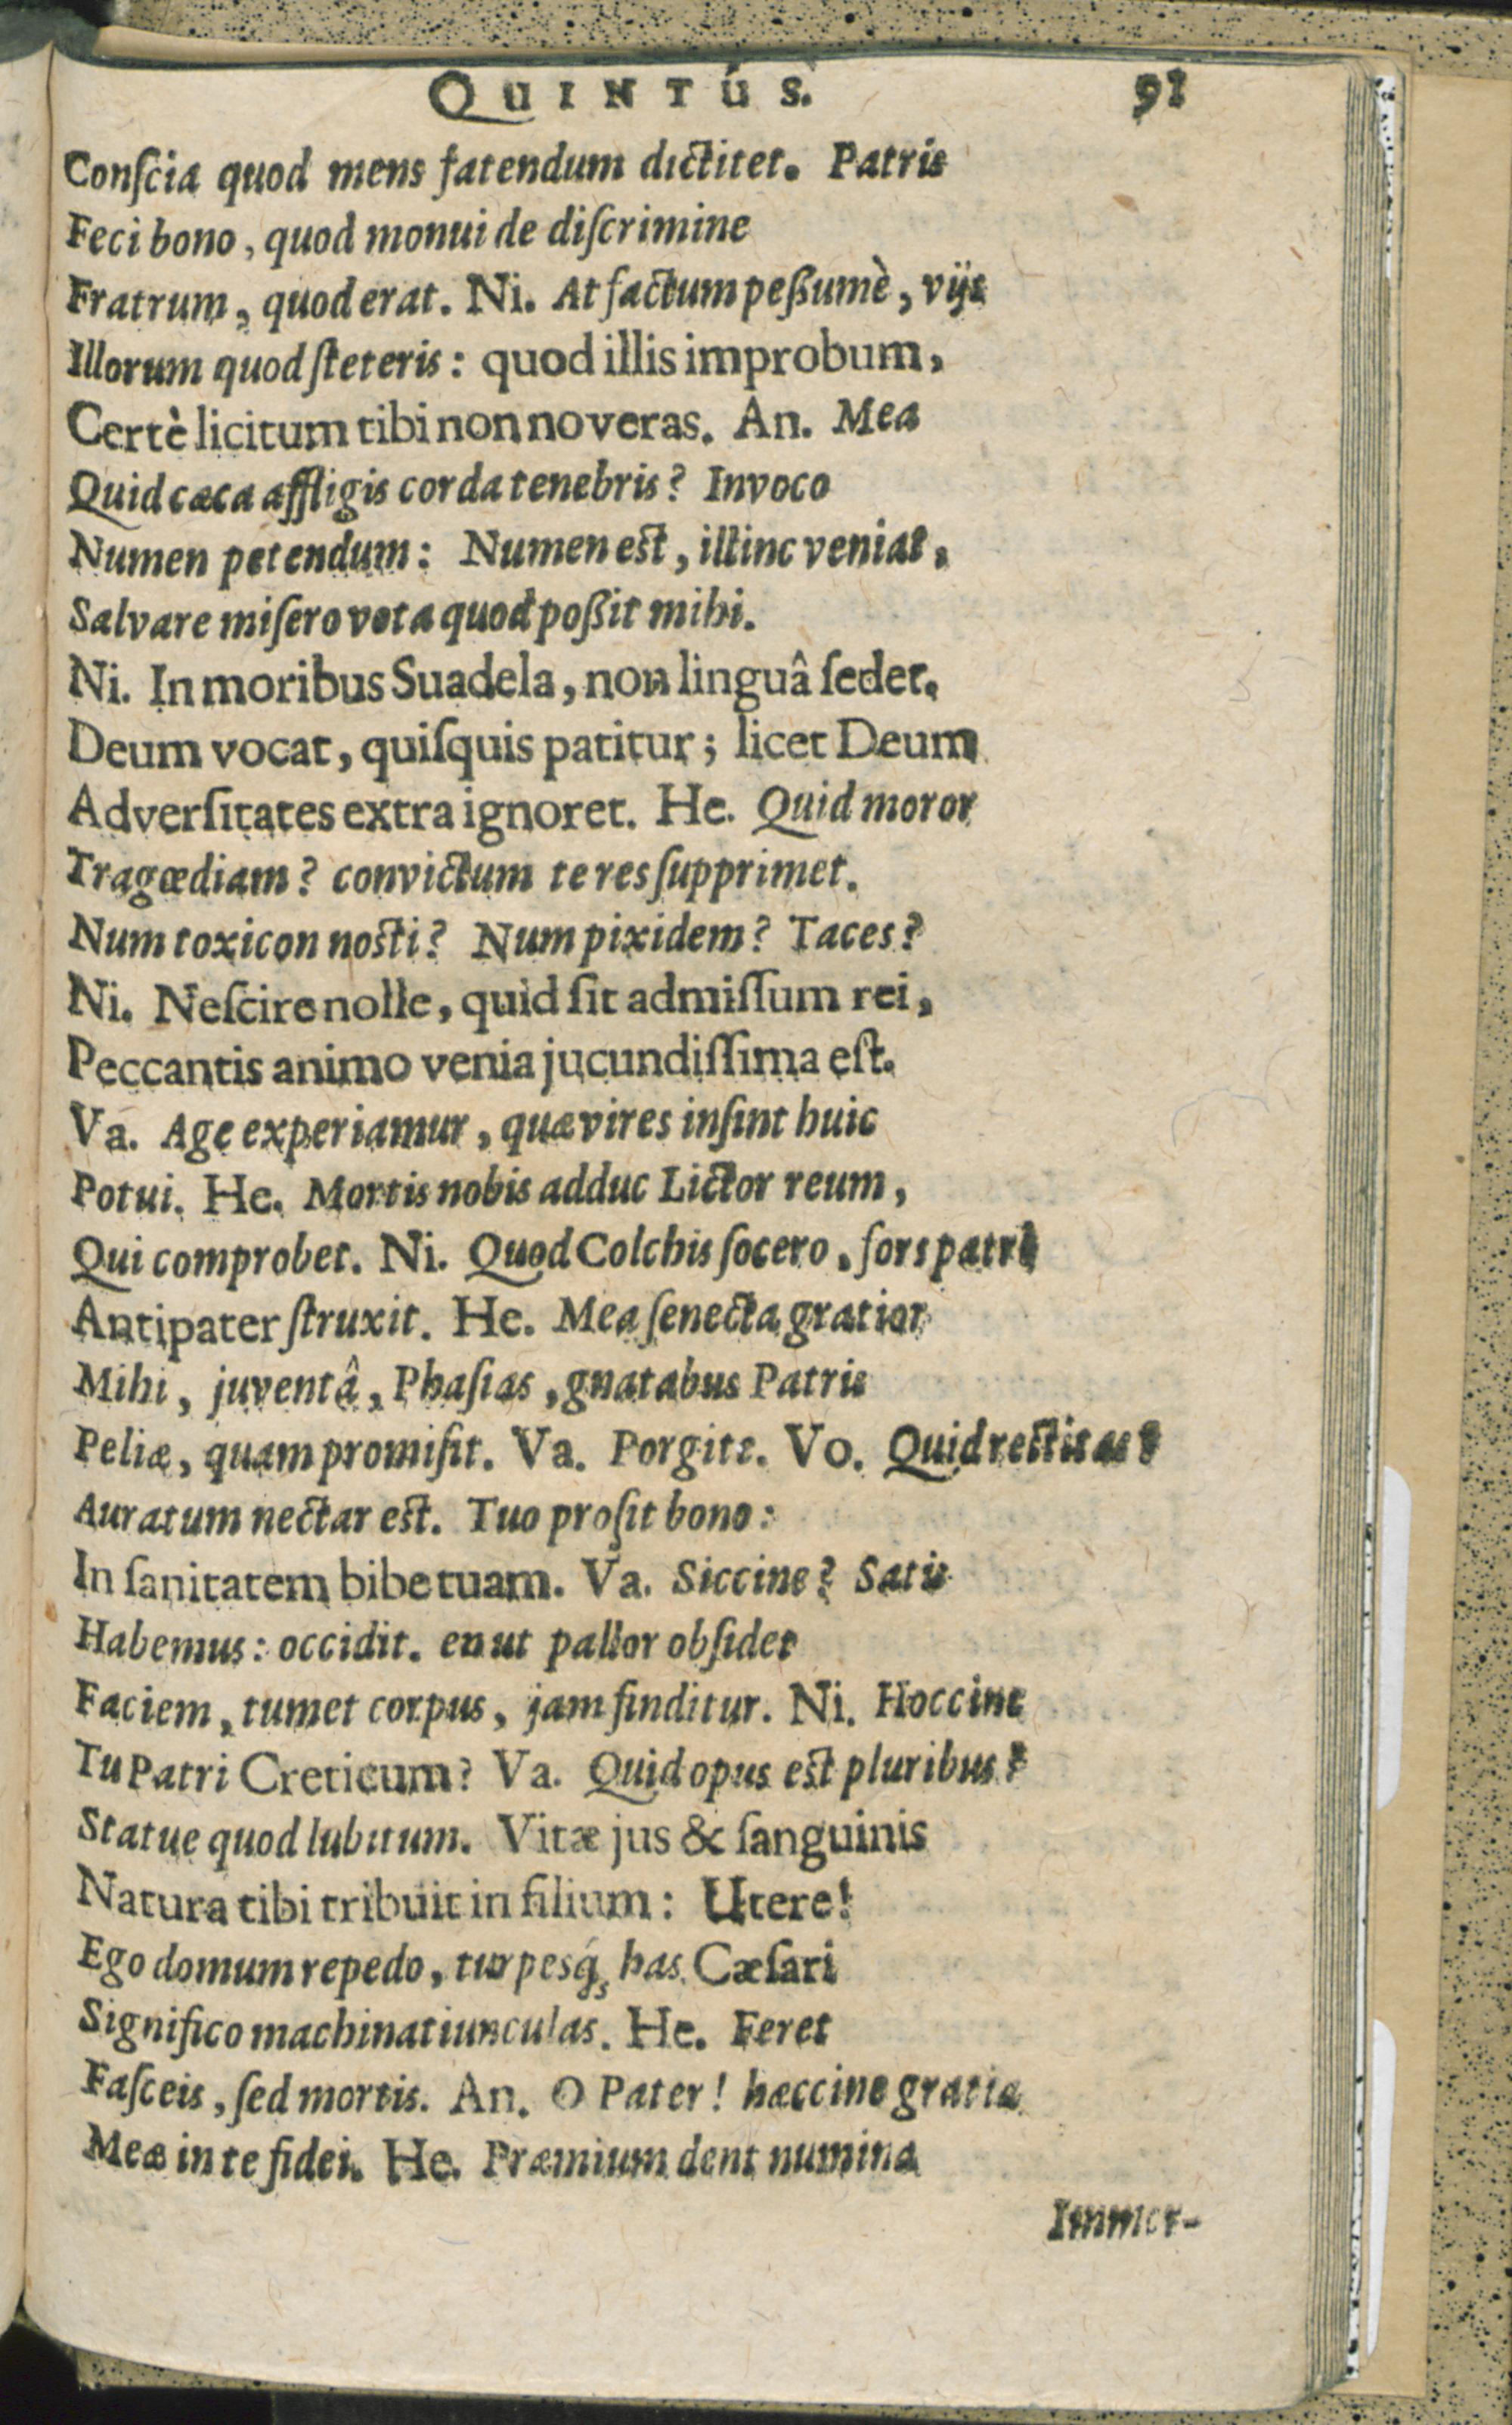 QUINTÚS. 91
Conſcia quod mens fatendum dictitet. Patris
Feci bono, quod monui de diſcrimine
Fratrum, quod erat. Ni. At factum peßumè, vijs
Illorum quod ſteteris: quod illis improbum,
Certè licitum tibi non noveras. An. Mea
Quid cæca affligis corda tenebris? Invoco
Numen petendum: Numen est, illinc veniat,
Salvare miſero vota quod poßit mihi.
Ni. In moribus Suadela, non linguâ ſedet.
Deum vocat, quiſquis patitur; licet Deum
Adverſitates extra ignoret. He. Quid moror
Tragœdiam? convictum te res ſupprimet.
Num toxicon nosti? Num pixidem? Taces?
Ni. Neſcire nolle, quid ſit admiſſum rei,
Peccantis animo venia jucundiſſima eſt.
Va. Age experiamur, quæ vires inſint huic
Potui. He. Mortis nobis adduc Lictor reum,
Qui comprobet. Ni. Quod Colchis ſocero, fors patri
Antipater ſtruxit. He. Mea ſenecta gratior
Mihi, juventâ, Phaſias, gnatabus Patris
Peliæ, quam promiſit. Va. Porgite. Vo. Quid rectitas?
Auratum nectar est. Tuo proſit bono:
In ſanitatem bibe tuam. Va. Siccine? Satis
Habemus: occidit. en ut pallor obſidet
Faciem, tumet corpus, jam finditur. Ni. Hoccine
Tu Patri Creticum? Va. Quid opus est pluribus?
Statue quod lubitum. Vitæ jus & ſanguinis
Natura tibi tribuit in filium: Utere!
Ego domum repedo, turpesq́; has Cæſari
Significo machinatiunculas. He. Feret
Faſceis, ſed mortis. An. O Pater! hæccine gratia
Meæ in te fidei. He. Præmium dent numina
Immer-